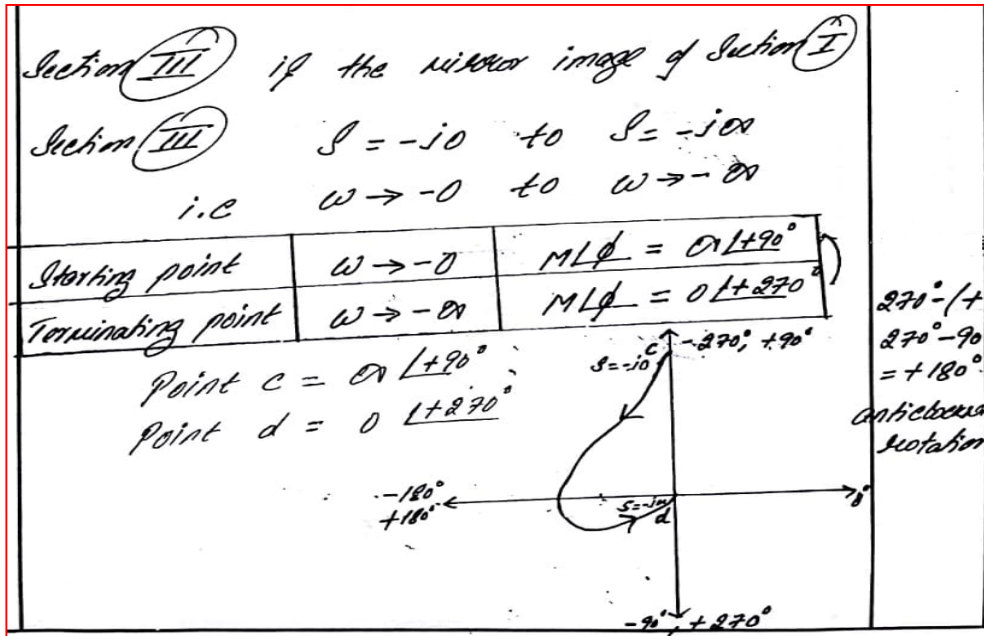 Section III is the mirror image of Section I
Section III S = -j0 to S = -j∞
i.e ω → -0 to ω → -∞
Starting point ω → -0 M∠φ = ∞∠+90°
Terminating point ω → -∞ M∠φ = 0∠+270°
270°-(+
270°-90
= +180°
anticlockwi
rotation
Point c = ∞∠+90°
Point d = 0∠+270°
-270°, +90°
c
S=-j0
-180°
+180°
S=-j∞
d
0°
-90°, +270°